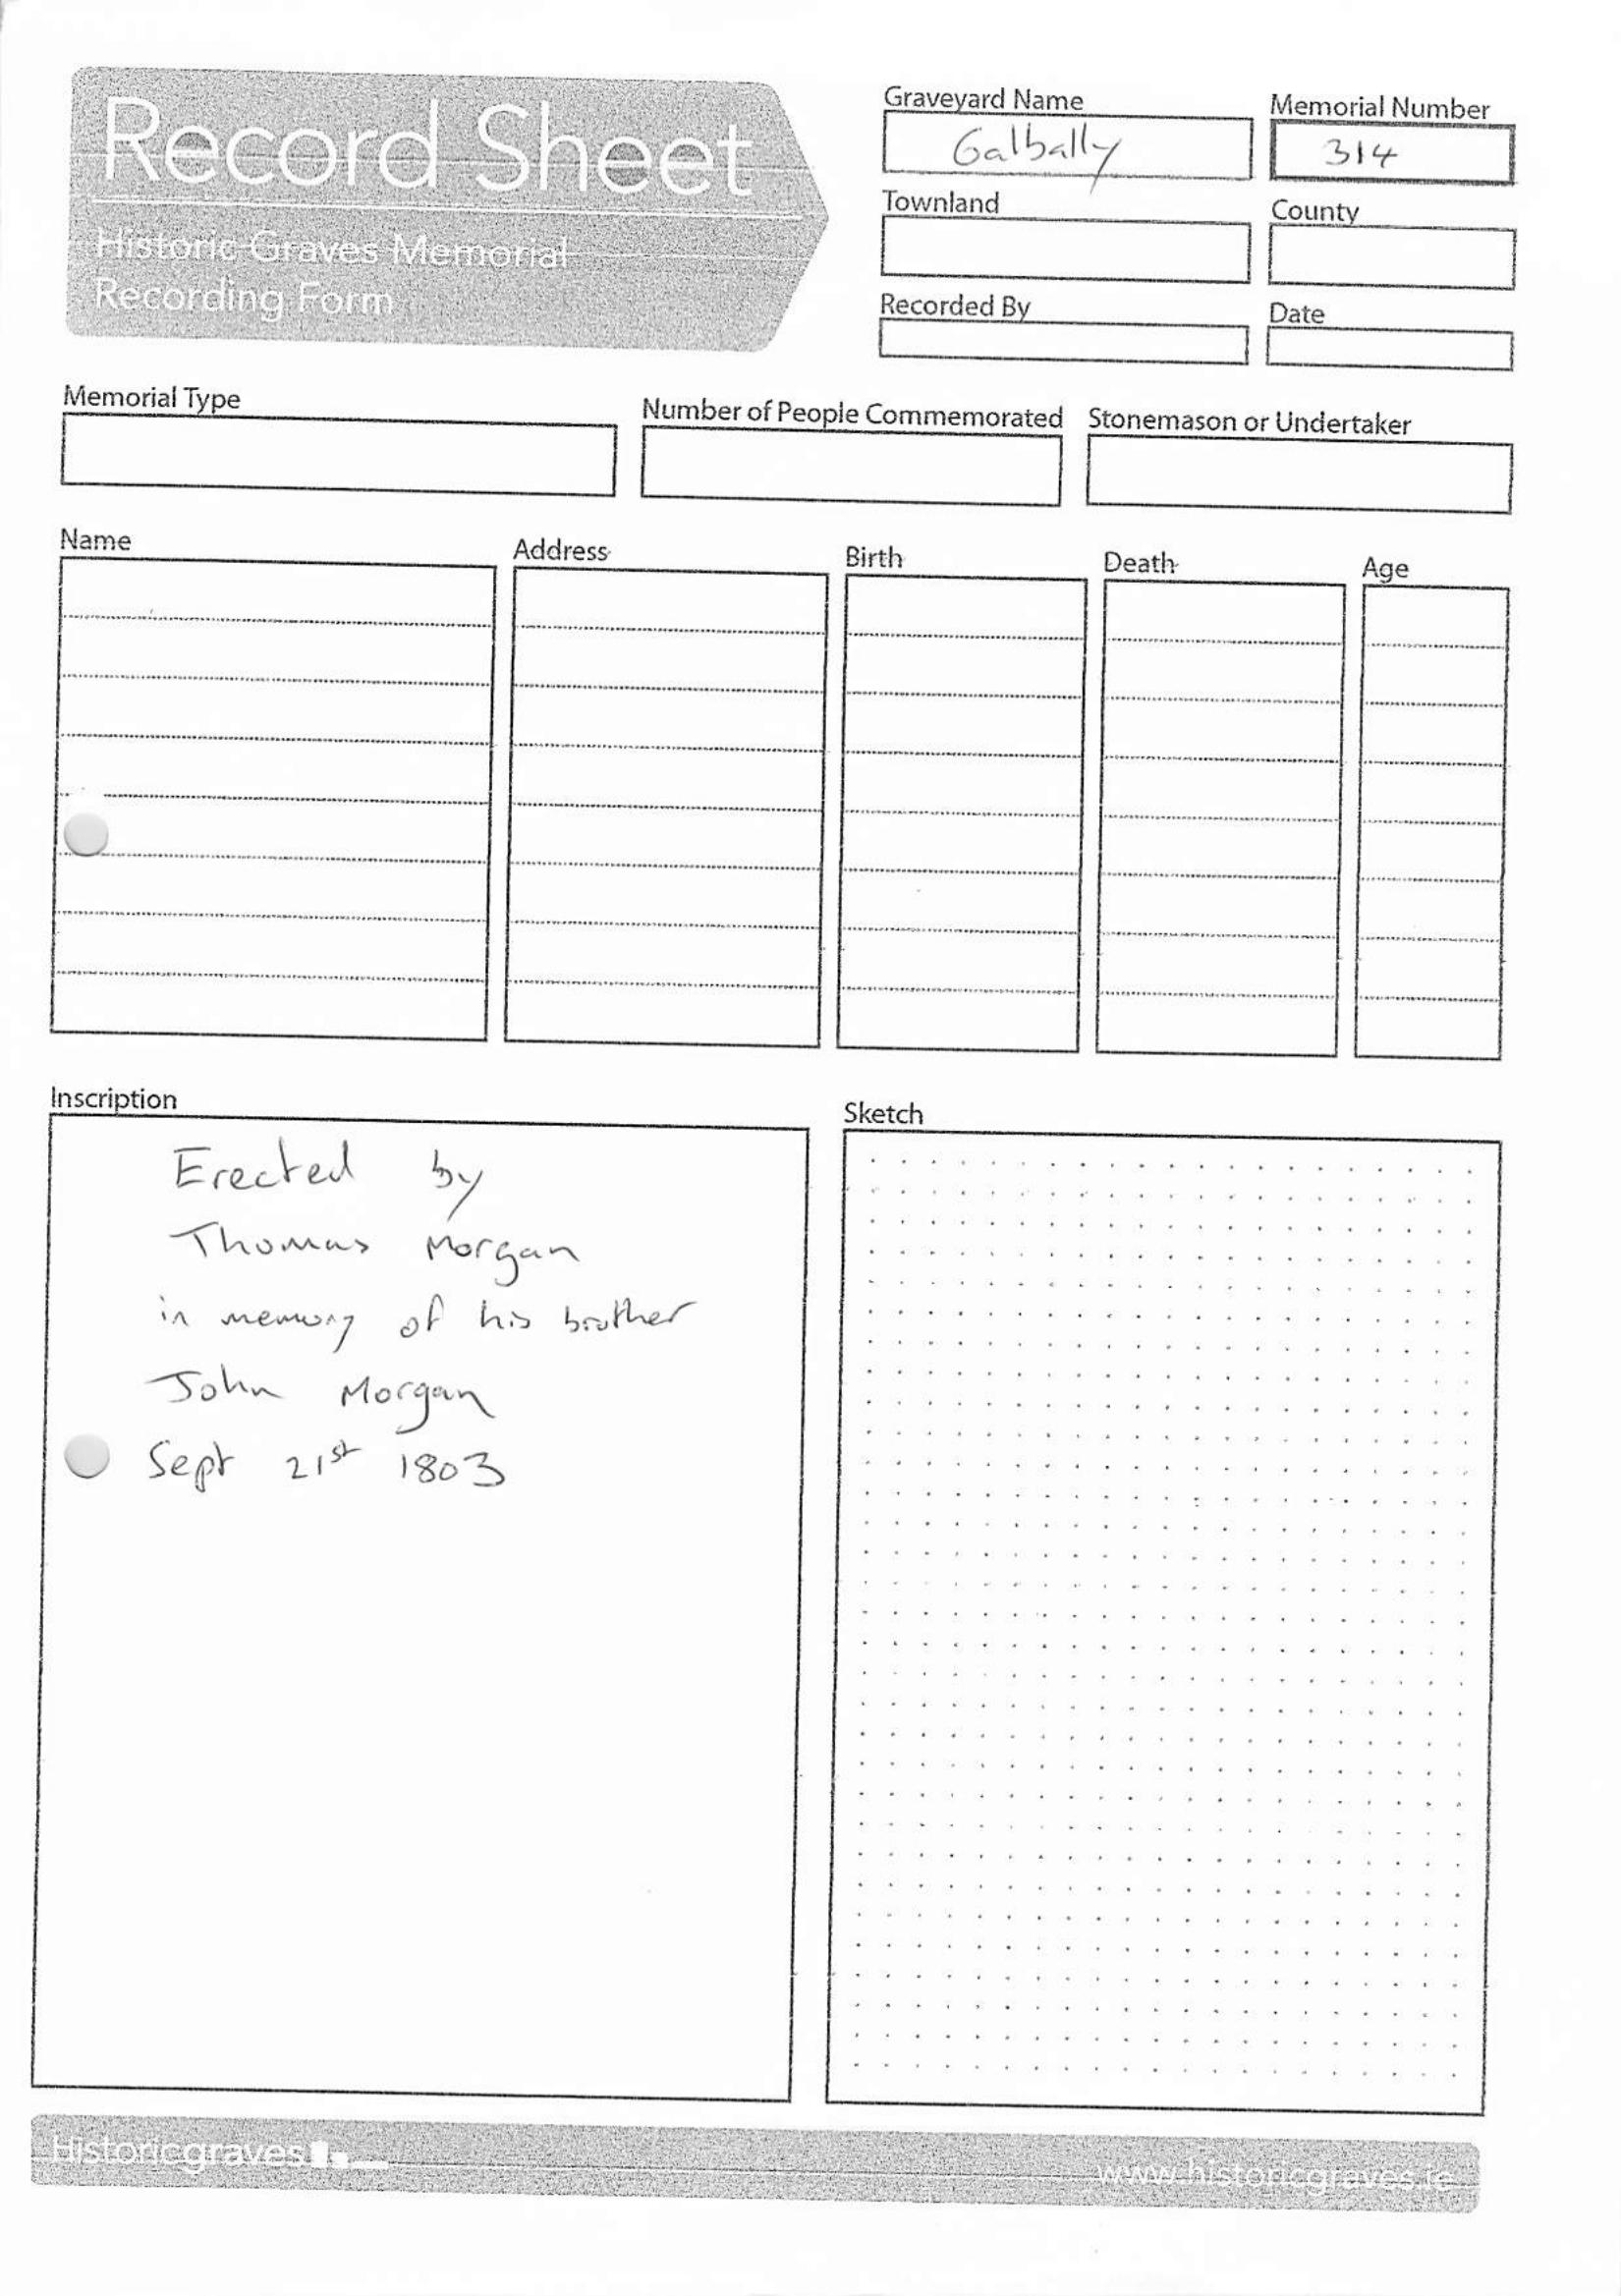 Record Sheet
Historic Graves Memorial
Recording Form
Graveyard Name
Galbally
Memorial Number
314
Townland
County
Recorded By
Date
Memorial Type
Number of People Commemorated
Stonemason or Undertaker
Name
Address
Birth
Death
Age
Inscription
Erected by
Thomas Morgan
in memory of his brother
John Morgan
Sept 21st 1803
Sketch
Historicgraves
www.historicgraves.ie